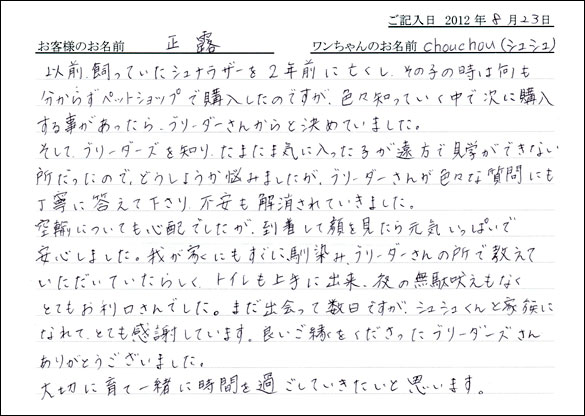 ご記入日 2012年 8月23日
お客様のお名前 正 露 ワンちゃんのお名前 chouchou(シュシュ)
以前、飼っていたシュナウザーを2年前に亡くし、その子の時は何も
分からずペットショップで購入したのですが、色々知っていく中で次に購入
する事があったら、ブリーダーさんからと決めていました。
そして、ブリーダーズを知り、たまたま気に入った子が遠方で見学ができない
所だったので、どうしようか悩みましたが、ブリーダーさんが色々な質問にも
丁寧に答えて下さり、不安も解消されていきました。
空輸についても心配でしたが、到着して顔を見たら元気いっぱいで
安心しました。我が家にもすぐに馴染み、ブリーダーさんの所で教えて
いただいていたらしく、トイレも上手に出来、夜の無駄吠えもなく
とてもお利口さんでした。まだ出会って数日ですが、シュシュくんと家族に
なれて、とても感謝しています。良いご縁をくださったブリーダーズさん
ありがとうございました。
大切に育て一緒に時間を過ごしていきたいと思います。